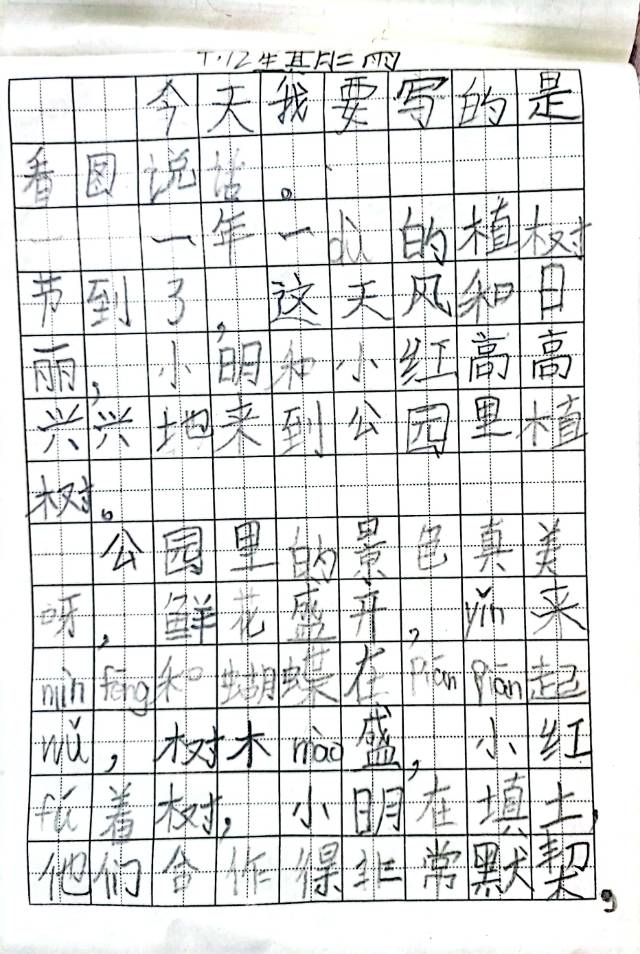 7.12 星期三 雨
今天我要写的是
看图说话。
一年一dù的植树
节到了,这天风和日
丽,小明和小红高高
兴兴地来到公园里植
树。
公园里的景色真美
呀,鲜花盛开,yǐn来
mìn fēng和蝴蝶在Piān Piān起
wǔ,树木mào盛,小红
fú着树,小明在填土,
他们合作得非常默契。